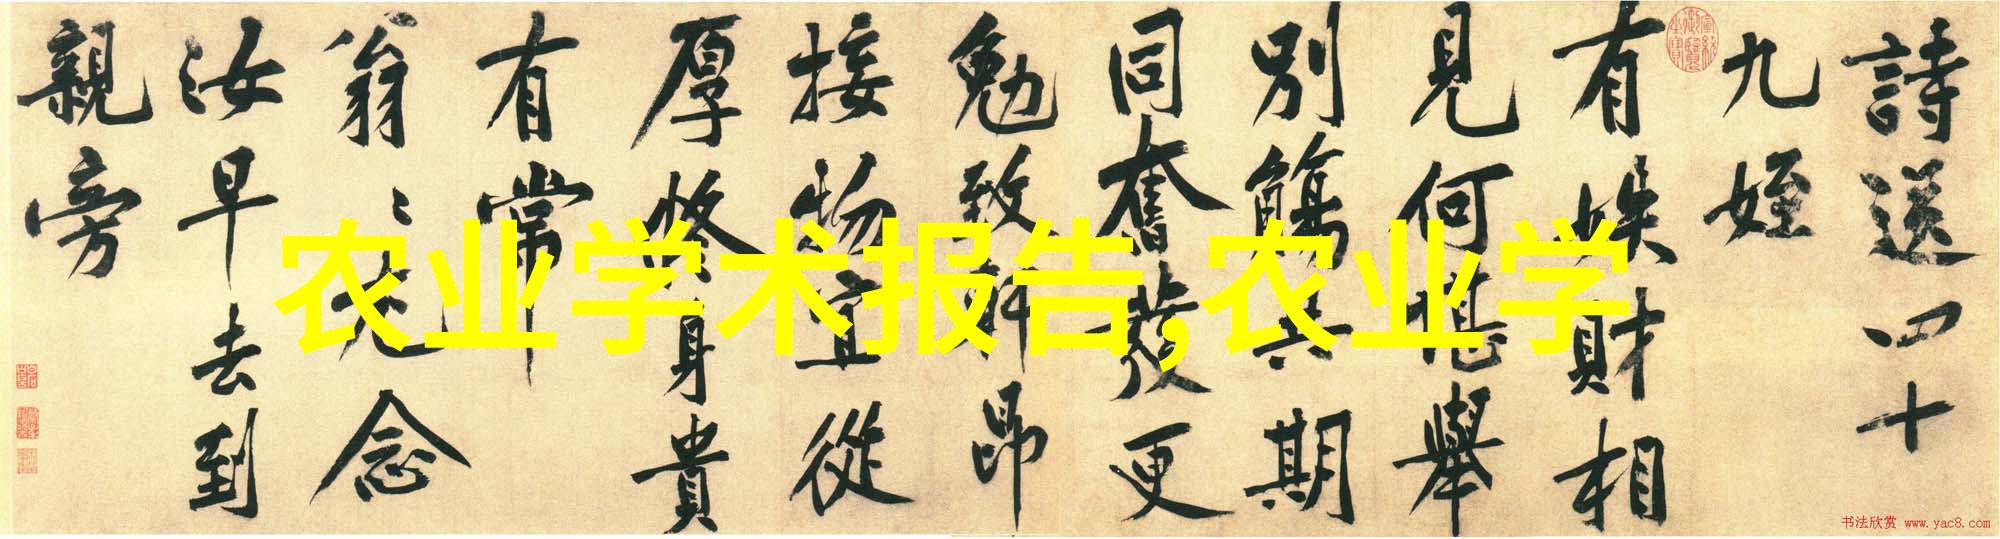 詩送四十
九姪
有峡財相
見何堪舉
別觴與期
同奮發更
勉致軒昂
接物宜從
厚收身貴
有常
翁〻老念
汝早去到
親旁
农业学术报告,农业学
书法欣赏 www.yac8.com